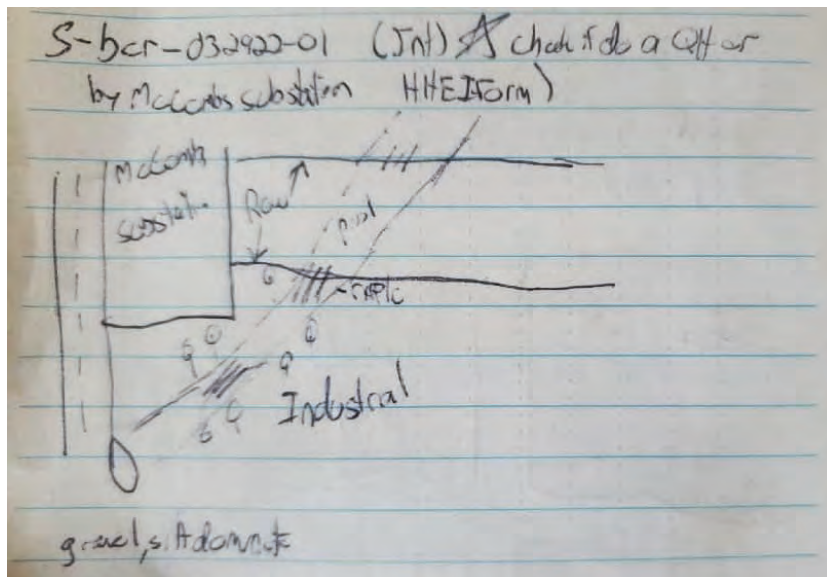 S-bcr-032922-01 (Int) check if do a QH or
by McCombs substation HHEI Form)
McComb
substation
Row
pool
riffle
Industrial
gravel, silt dominate